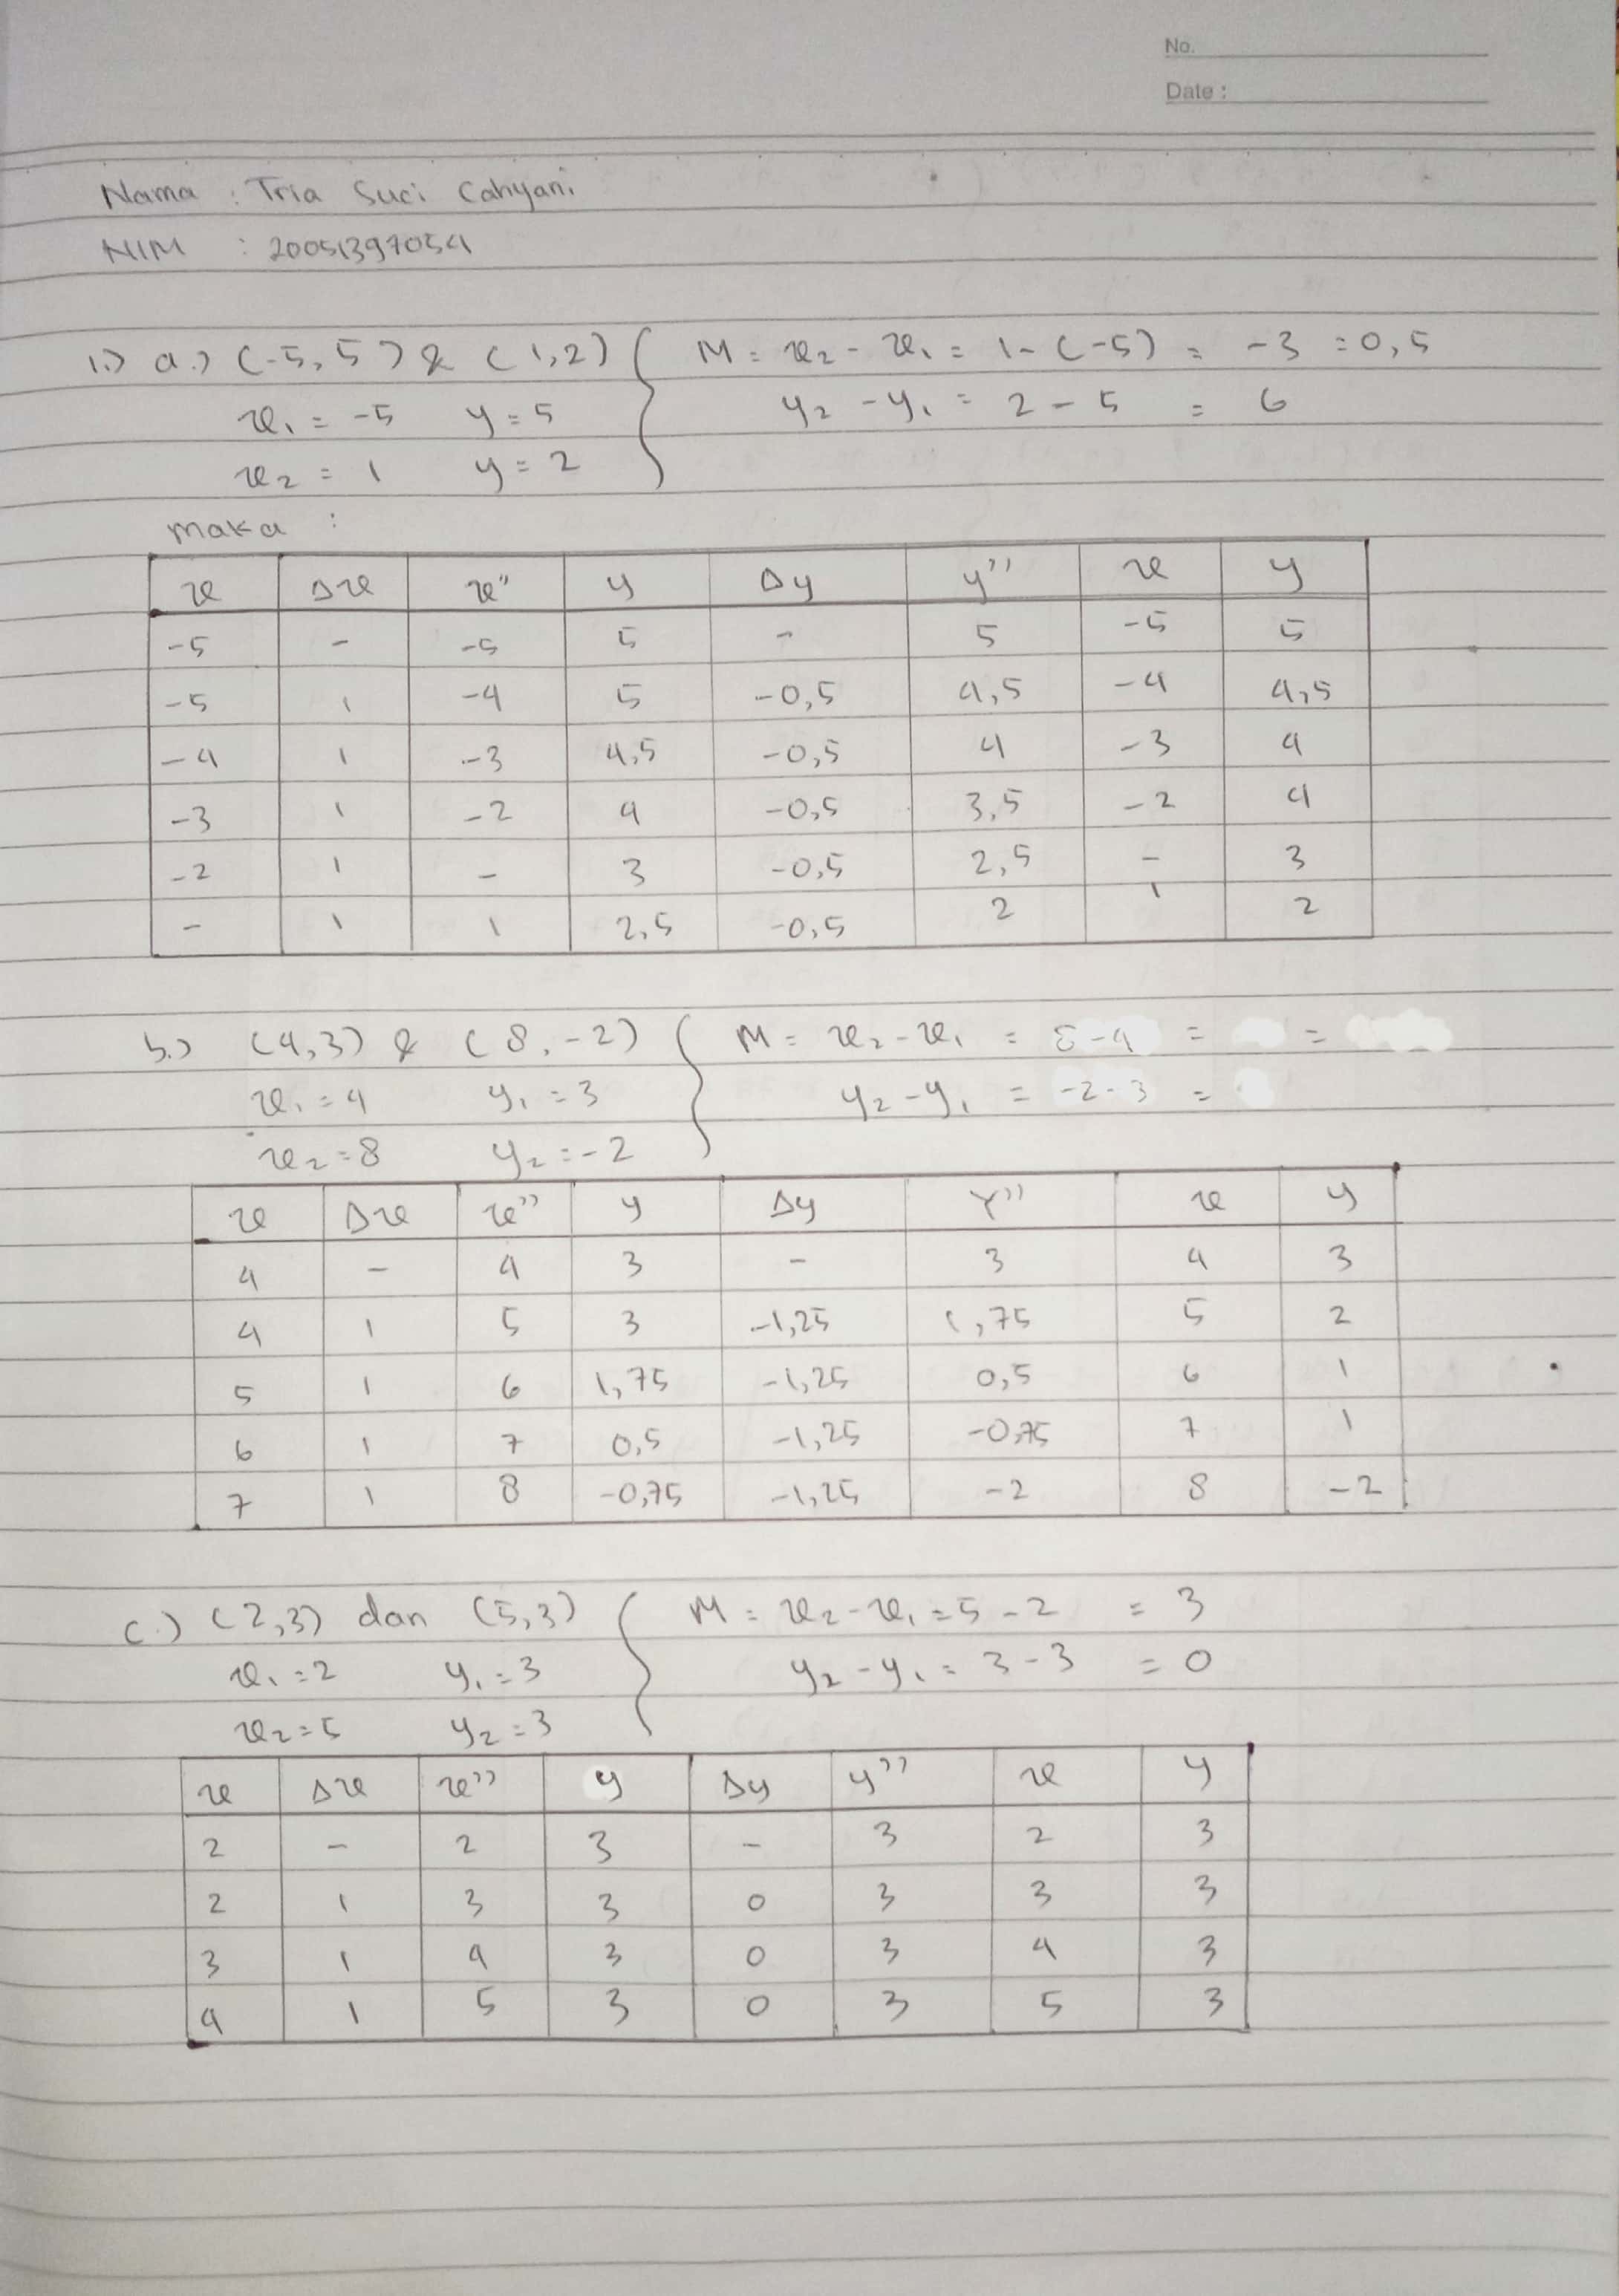 No.
Date :
Nama : Tria Suci Cahyani
NIM : 20051397054
1.) a.) (-5, 5) & (1,2) { M = x2 - x1 = 1-(-5) = -3 = 0,5
x1 = -5 y = 5 y2 - y1 = 2 - 5 = 6
x2 = 1 y = 2
maka :
x Δx x" y Δy y" x y
-5 - -5 5 - 5 -5 5
-5 1 -4 5 -0,5 4,5 -4 4,5
-4 1 -3 4,5 -0,5 4 -3 4
-3 1 -2 4 -0,5 3,5 -2 4
-2 1 - 3 -0,5 2,5 - 3
- 1 1 2,5 -0,5 2 1 2
b.) (4,3) & (8,-2) { M = x2 - x1 = 8-4 = =
x1 = 4 y1 = 3 y2 - y1 = -2-3 =
x2 = 8 y2 = -2
x Δx x" y Δy Y" x y
4 - 4 3 - 3 4 3
4 1 5 3 -1,25 1,75 5 2
5 1 6 1,75 -1,25 0,5 6 1
6 1 7 0,5 -1,25 -0,75 7 1
7 1 8 -0,75 -1,25 -2 8 -2
c.) (2,3) dan (5,3) { M = x2 - x1 = 5 - 2 = 3
x1 = 2 y1 = 3 y2 - y1 = 3 - 3 = 0
x2 = 5 y2 = 3
x Δx x" y Δy y" x y
2 - 2 3 - 3 2 3
2 1 3 3 0 3 3 3
3 1 4 3 0 3 4 3
4 1 5 3 0 3 5 3